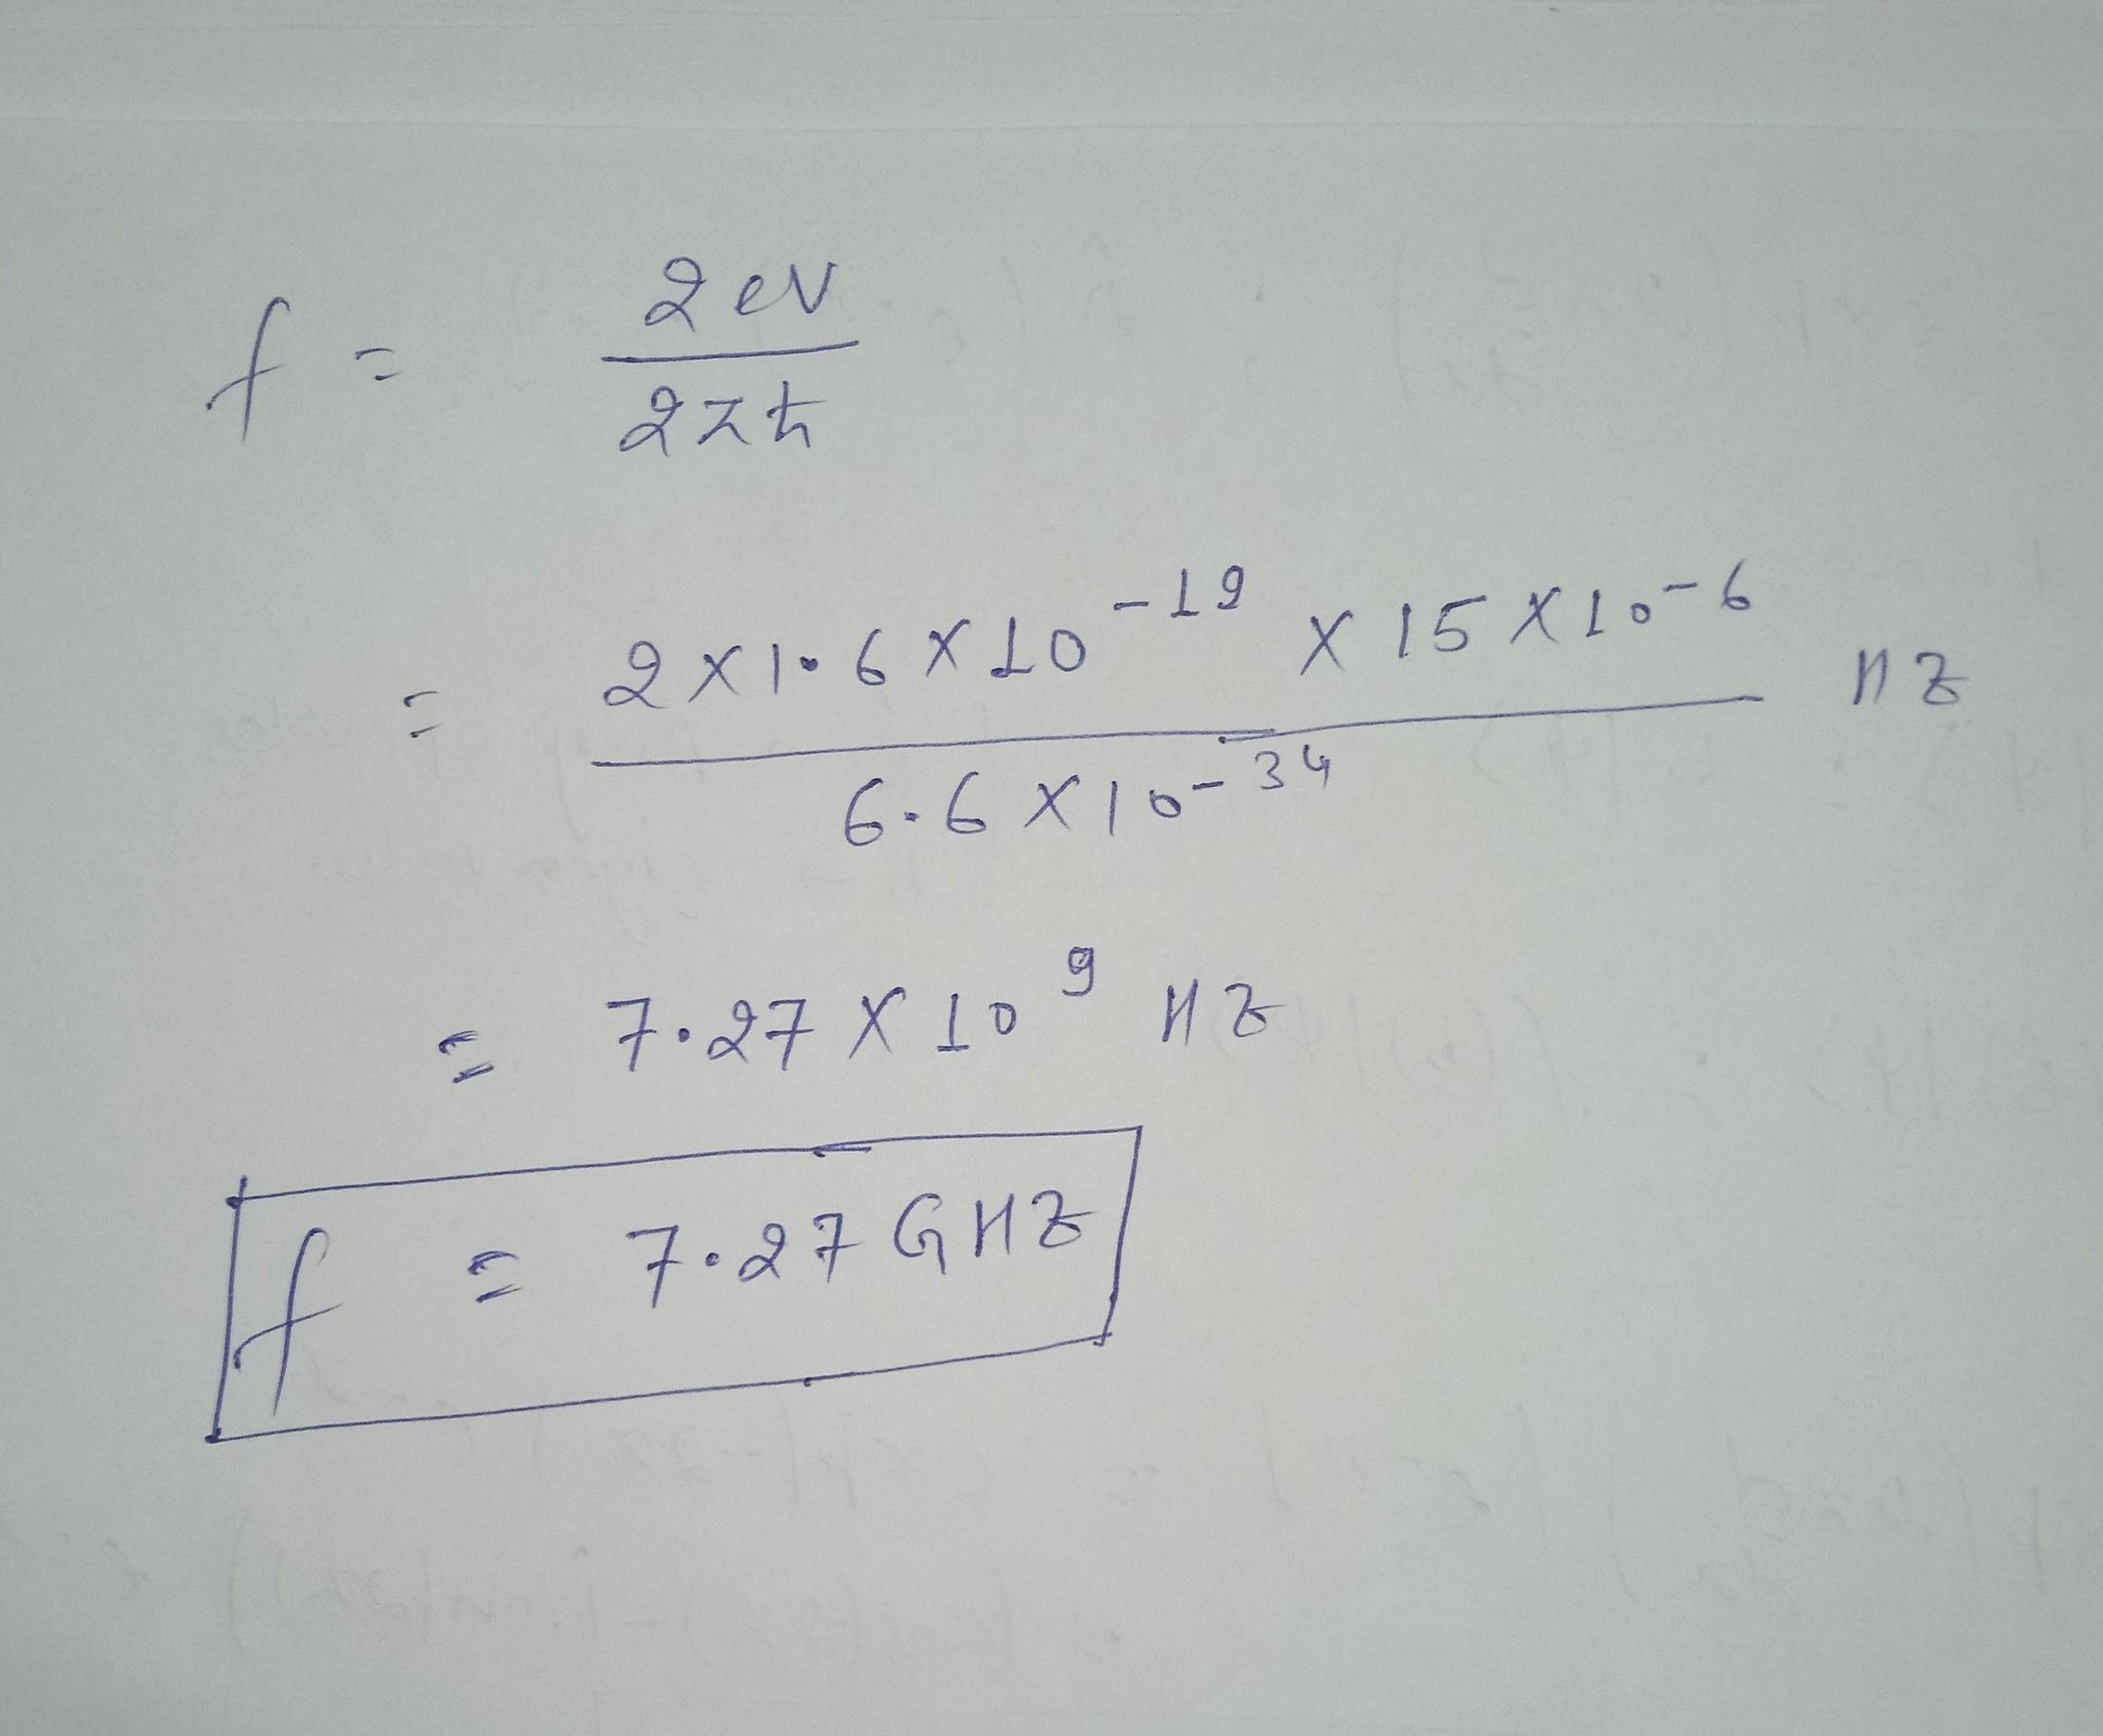 f = 2eV / 2πħ
= 2 × 1.6 × 10⁻¹⁹ × 15 × 10⁻⁶ / 6.6 × 10⁻³⁴ HZ
= 7.27 × 10⁹ HZ
f = 7.27 GHZ